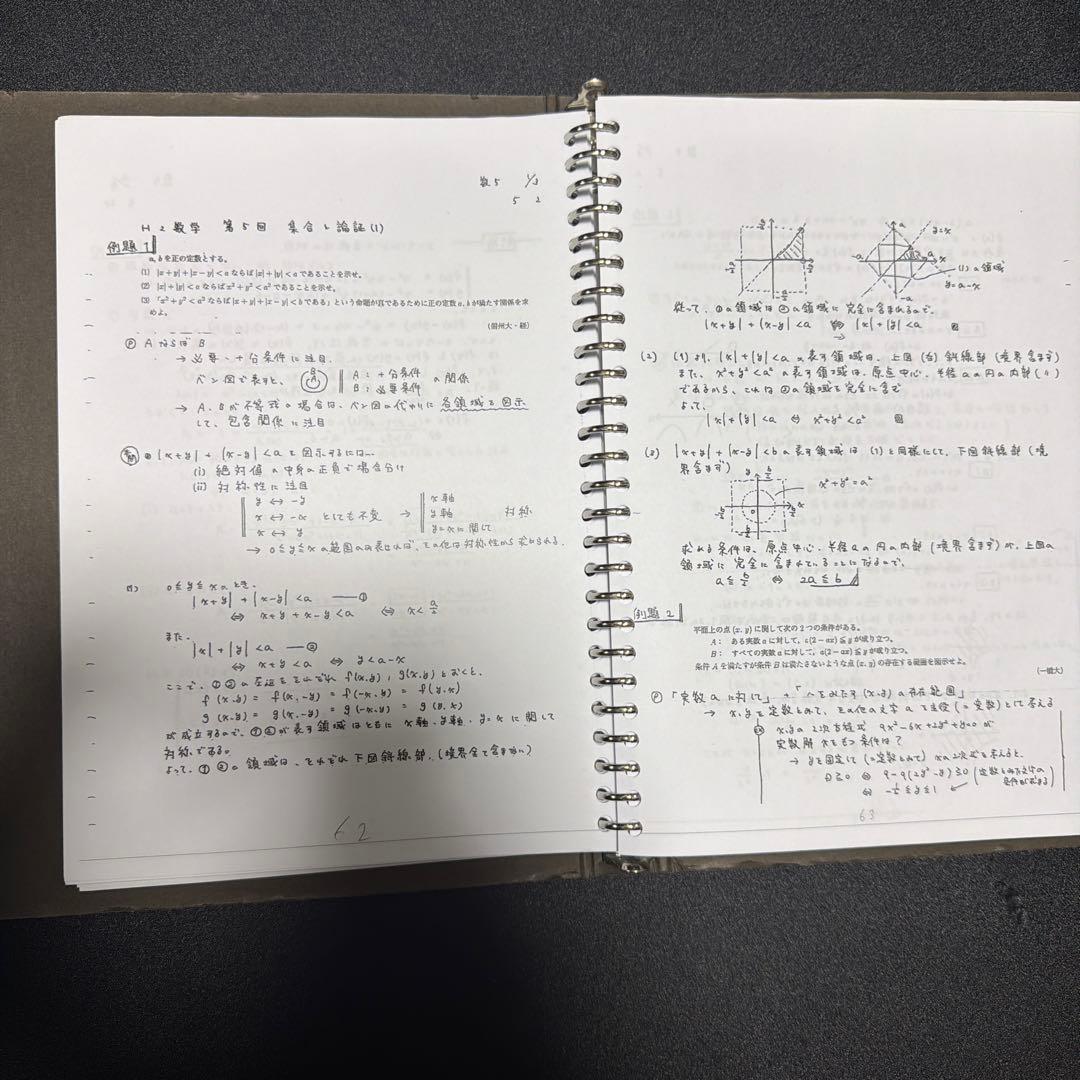 数5 1/3
5 2
H2数学 第5回 集合と論証(1)
例題1
a, bを正の定数とする。
(1) |x+y|+|x−y|<aならば|x|+|y|<aであることを示せ。
(2) |x|+|y|<aならばx²+y²<a²であることを示せ。
(3) 「x²+y²<a²ならば|x+y|+|x−y|<bである」という命題が真であるために正の定数a, bが満たす関係を求
めよ。
(信州大・経)
Ⓟ AならばB
→ 必要、十分条件に注目.
ベン図で表すと、 B A A:十分条件 の関係
B:必要条件
→ A, Bが不等式の場合は、ベン図の代わりに各領域を図示
して、包含関係に注目
|x+y|+|x−y|<aを図示するには...
(i) 絶対値の中身の正負で場合分け
(ii) 対称性に注目
y ↔ −y x軸
x ↔ −x としても不変 → y軸 対称
x ↔ y y=xに関して
→ 0≦y≦xの範囲のみ表せれば、その他は対称性から求められる.
(1) 0≦y≦xのとき.
|x+y|+|x−y|<a ―①
⇔ x+y+x−y<a ⇔ x<a/2
また.
|x|+|y|<a ―②
⇔ x+y<a ⇔ y<a−x
ここで、①②の左辺をそれぞれf(x,y), g(x,y)とおくと、
f(x,y) = f(x,−y) = f(−x,y) = f(y,x)
g(x,y) = g(x,−y) = g(−x,y) = g(y,x)
が成立するので、①②が表す領域はともにx軸、y軸、y=xに関して
対称である。
よって、①②の領域は、それぞれ下図斜線部.(境界全て含まない)
62
a/2 −a/2 a/2 −a/2
a −a x −a y=x
(1)の領域
y=a−x
従って、①の領域は②の領域に完全に含まれるので.
|x+y|+|x−y|<a ⇒ |x|+|y|<a
(2) (1)より、|x|+|y|<aの表す領域は、上図(右)斜線部(境界含まず)
また、x²+y²<a²の表す領域は、原点中心、半径aの円の内部(〃)
であるから、これは②の領域を完全に含む
よって、
|x|+|y|<a ⇒ x²+y²<a²
(3) |x+y|+|x−y|<bの表す領域は(1)と同様にして、下図斜線部(境
界含まず)
y b/2 x²+y²=a²
−b/2 0 b/2 x
−b/2
求める条件は、原点中心、半径aの円の内部(境界含まず)が、上図の
領域に完全に含まれていることになるので、
a≦b/2 ⇔ 2a≦b
例題2
平面上の点(x, y)に関して次の2つの条件がある。
A: ある実数aに対して,a(2−ax)≦yが成り立つ。
B: すべての実数aに対して,a(2−ax)≦yが成り立つ。
条件Aを満たすが条件Bは満たさないような点(x, y)の存在する範囲を図示せよ。
(一橋大)
Ⓟ 「実数aに対して」+「〜をみたす(x,y)の存在範囲」
→ x,yを定数とみて、その他の文字aを主役(=変数)として考える
x,yの2次方程式 9x²−6x+2y²+y=0が
実数解xをもつ条件は?
→ yを固定して(=定数とみて)xの2次式を考えると、
D≧0 ⇔ 9−9(2y²+y)≧0
⇔ ≦y≦1
63